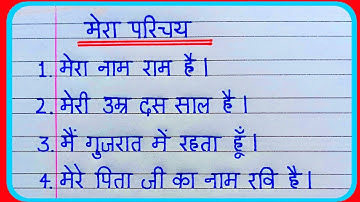 मेरा परिचय
1. मेरा नाम राम है।
2. मेरी उम्र दस साल है।
3. मैं गुजरात में रहता हूँ।
4. मेरे पिता जी का नाम रवि है।